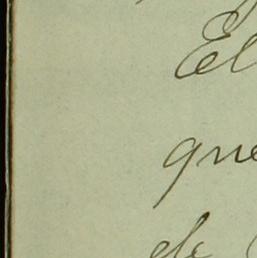 El
que
de